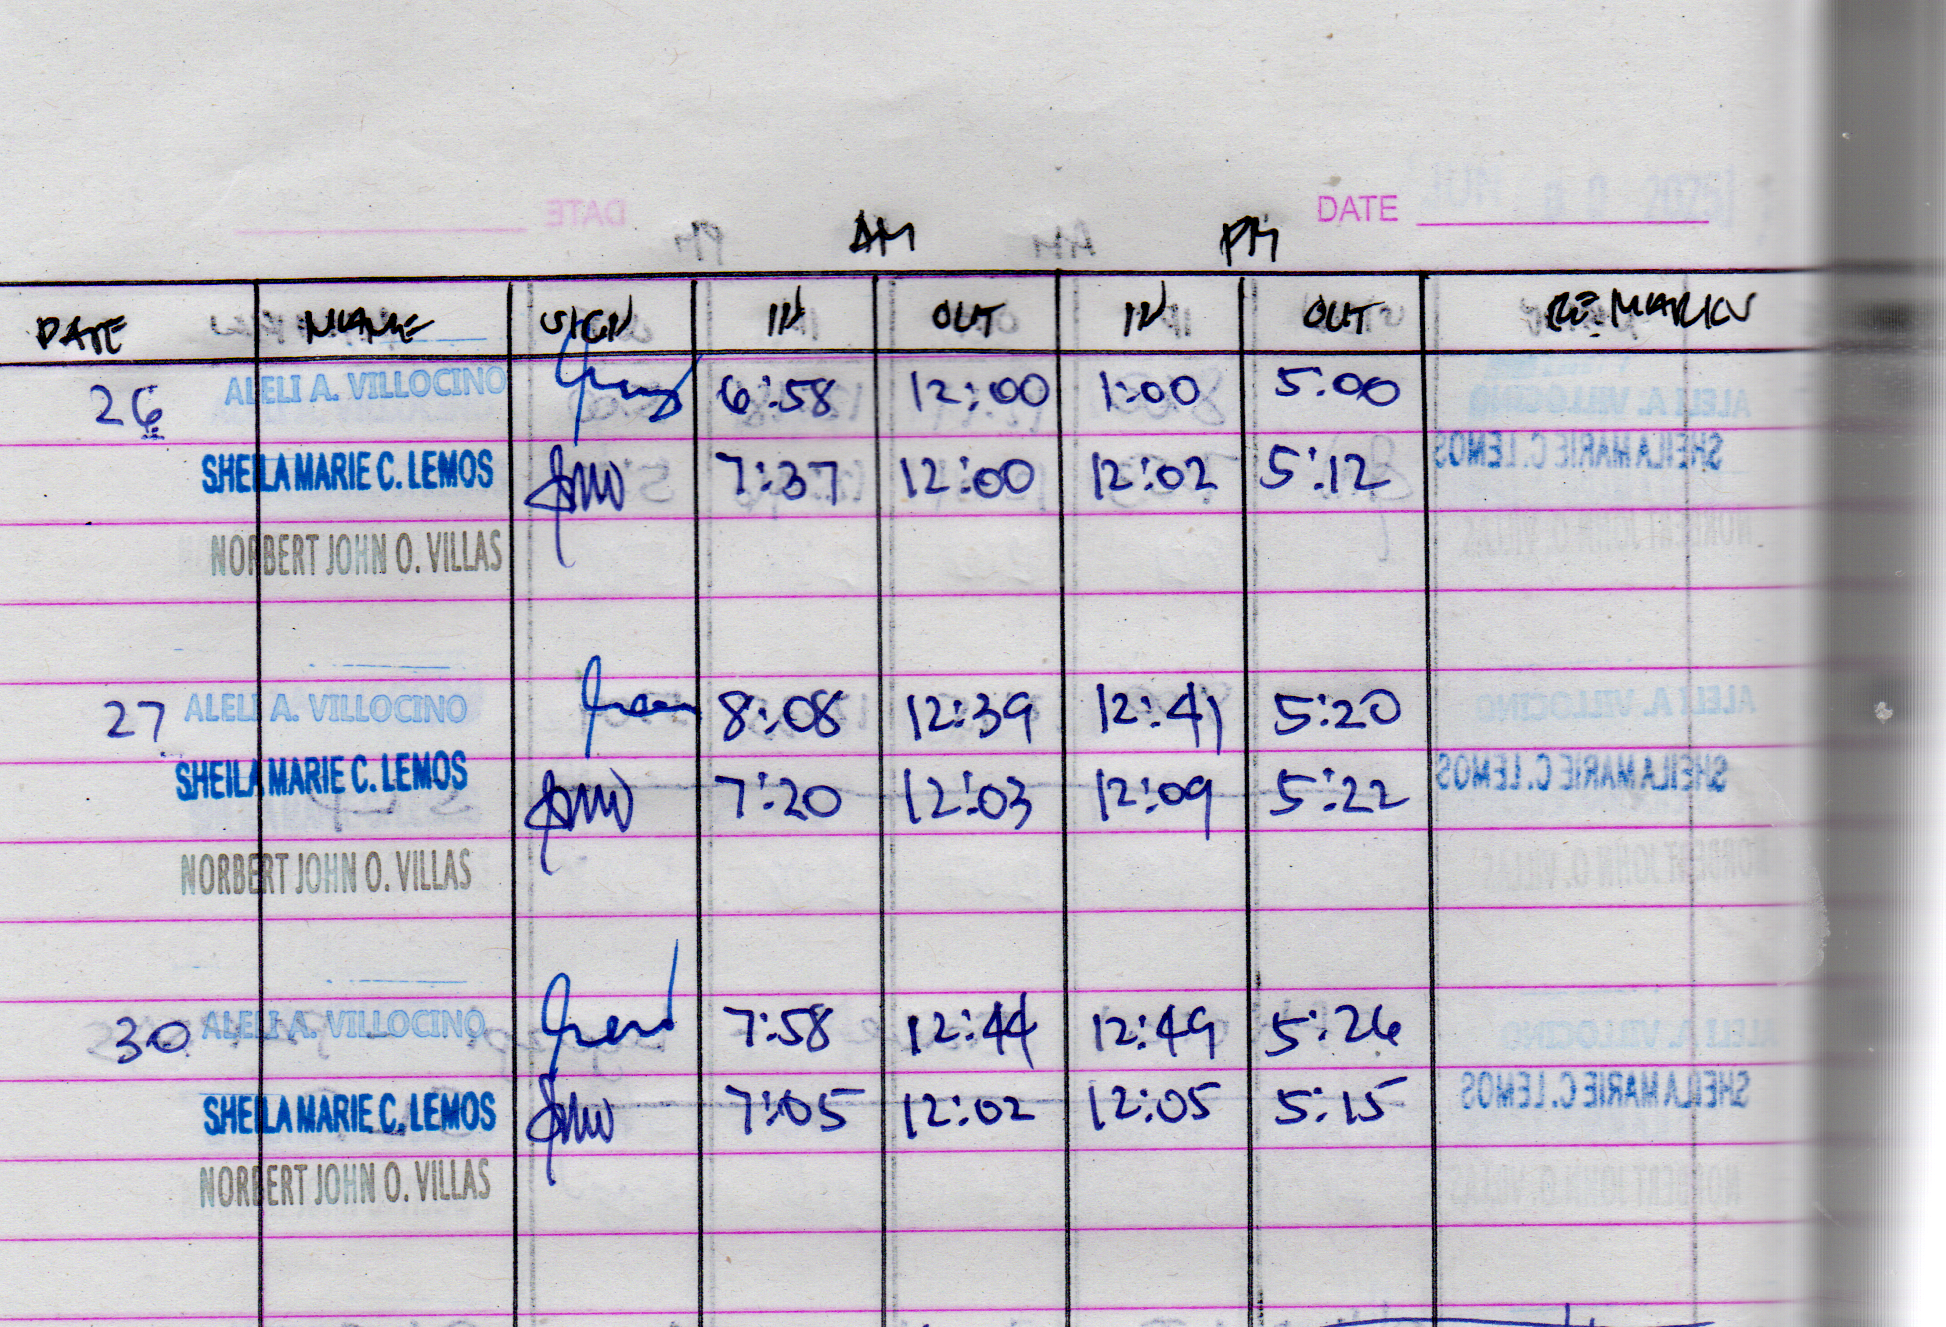 DATE
AM PM
DATE NAME SIGN IN OUT IN OUT REMARKS
26 ALELI A. VILLOCINO 6:58 12:00 1:00 5:00
SHEILA MARIE C. LEMOS 7:37 12:00 12:02 5:12
NORBERT JOHN O. VILLAS
27 ALELI A. VILLOCINO 8:08 12:39 12:41 5:20
SHEILA MARIE C. LEMOS 7:20 12:03 12:09 5:22
NORBERT JOHN O. VILLAS
30 ALELI A. VILLOCINO 7:58 12:44 12:49 5:26
SHEILA MARIE C. LEMOS 7:05 12:02 12:05 5:15
NORBERT JOHN O. VILLAS